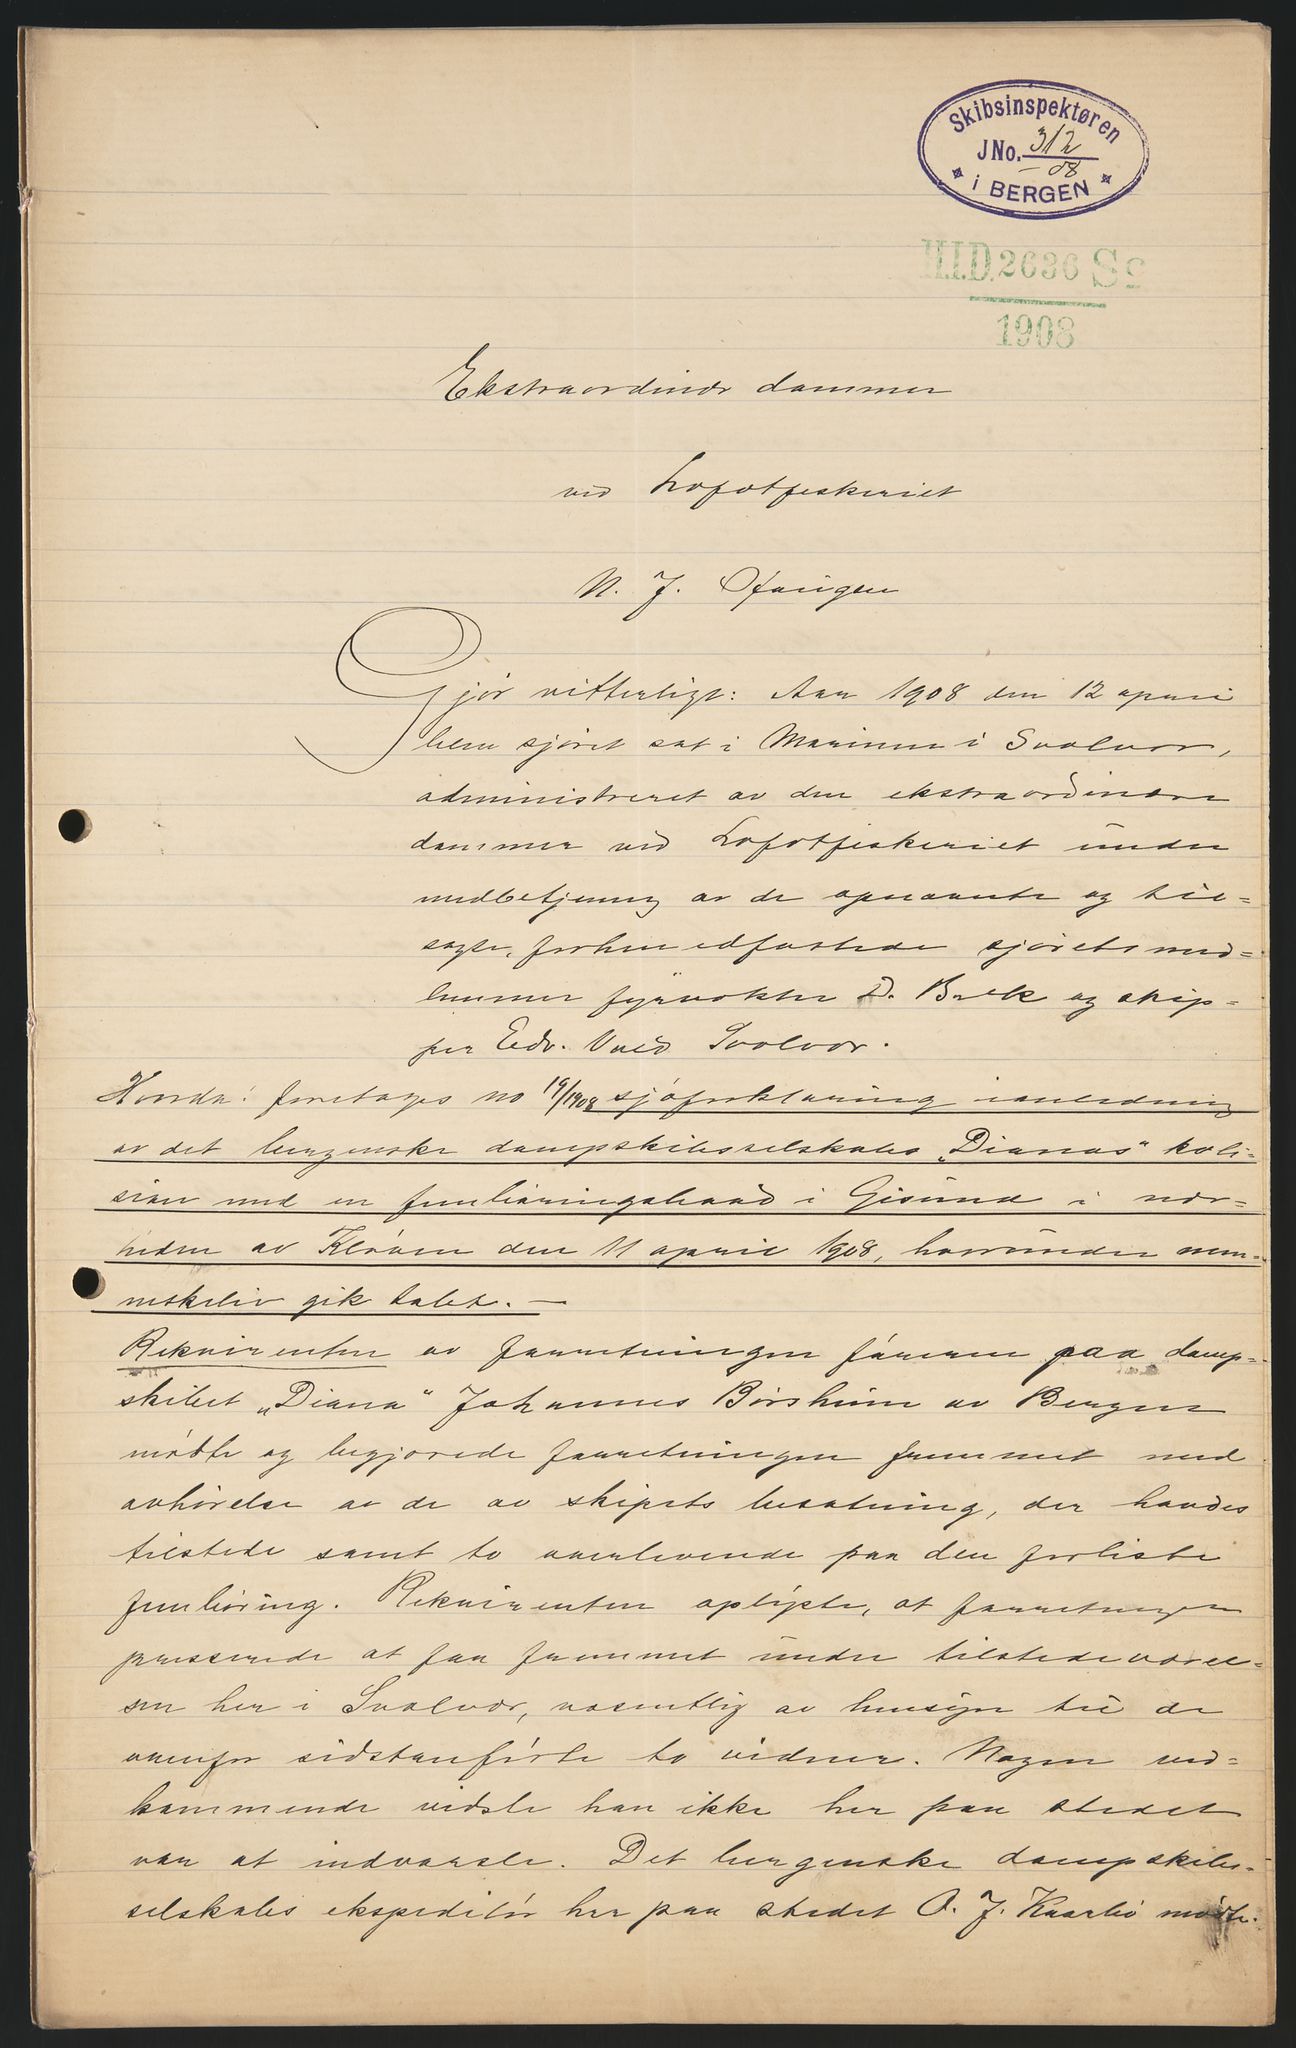 Skibsinspektøren
JNo. 312
-08
i BERGEN
H.I.D. 2636 Sc
1908
Ekstraordinær dommer
ved Lofotfiskeriet
N. J.
Gjør vitterligt: Aar 1908 den 12 april
blev sjøret sat i Marinen i Svolvær,
administreret av den ekstraordinære
dommer ved Lofotfiskeriet under
medbetjening av de opnævnte og til-
sagte, forhen edfæstede sjøretsmed-
lemmer fyrvokter D. Brek og skip-
per Edv. Vold Svolvær.
Hvorda: foretages no 19/1908 sjøforklaring i anledning
av det bergenske dampskibsselskabs "Dianas" koli-
sion med en fembøringsbaad i Gisund i nær-
heden av Kløven den 11 april 1908, hvorunder men-
neskeliv gik tabt. —
Rekvirenten av forretningen føreren paa damp-
skibet "Diana" Johannes Børsheim av Bergen
mødte og begjærede forretningen fremmet med
avhørelse av de av skipets besætning, der havdes
tilstede samt to overlevende paa den forliste
fembøring. Rekvirenten oplyste, at forretningen
presserede at faa fremmet under tilstedeværel-
sen her i Svolvær, væsentlig av hensyn til de
ovenfor sidstanførte to vidner. Nogen ved-
kommende vidste han ikke her paa stedet
var at indvarsle. Det bergenske dampskibs-
selskabs ekspeditør her paa stedet O. J. Kaarbø mødte.